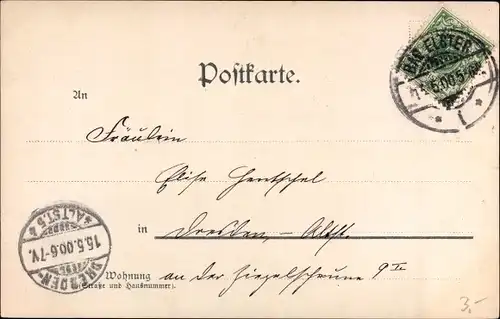 BAD ELSTER
5.00.5-6
Postkarte.
An
Fräulein
Elise Hentschel
in Dresden-Altst.
Wohnung an der Ziegelscheune 9 II
(Straße und Hausnummer).
DRESDEN-
ALTST.5
15.5.00.6-7V.
3,-